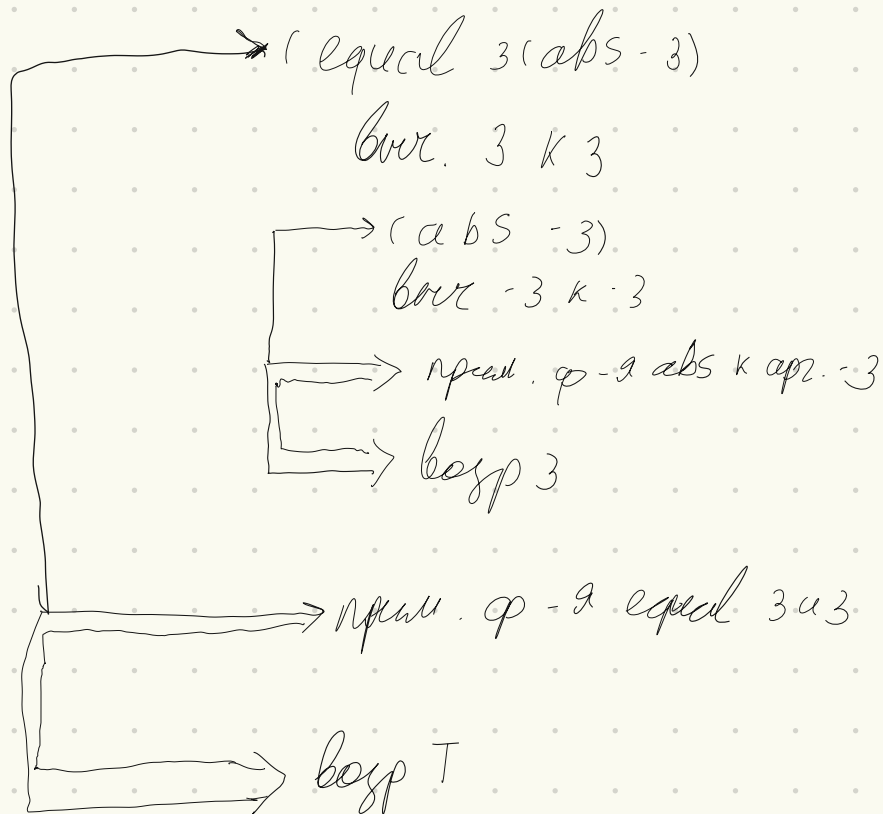 (equal 3 (abs -3)
выч. 3 к 3
(abs -3)
выч -3 к -3
прим. ф-я abs к арг. -3
возр 3
прим. ф-я equal 3 и 3
возр T